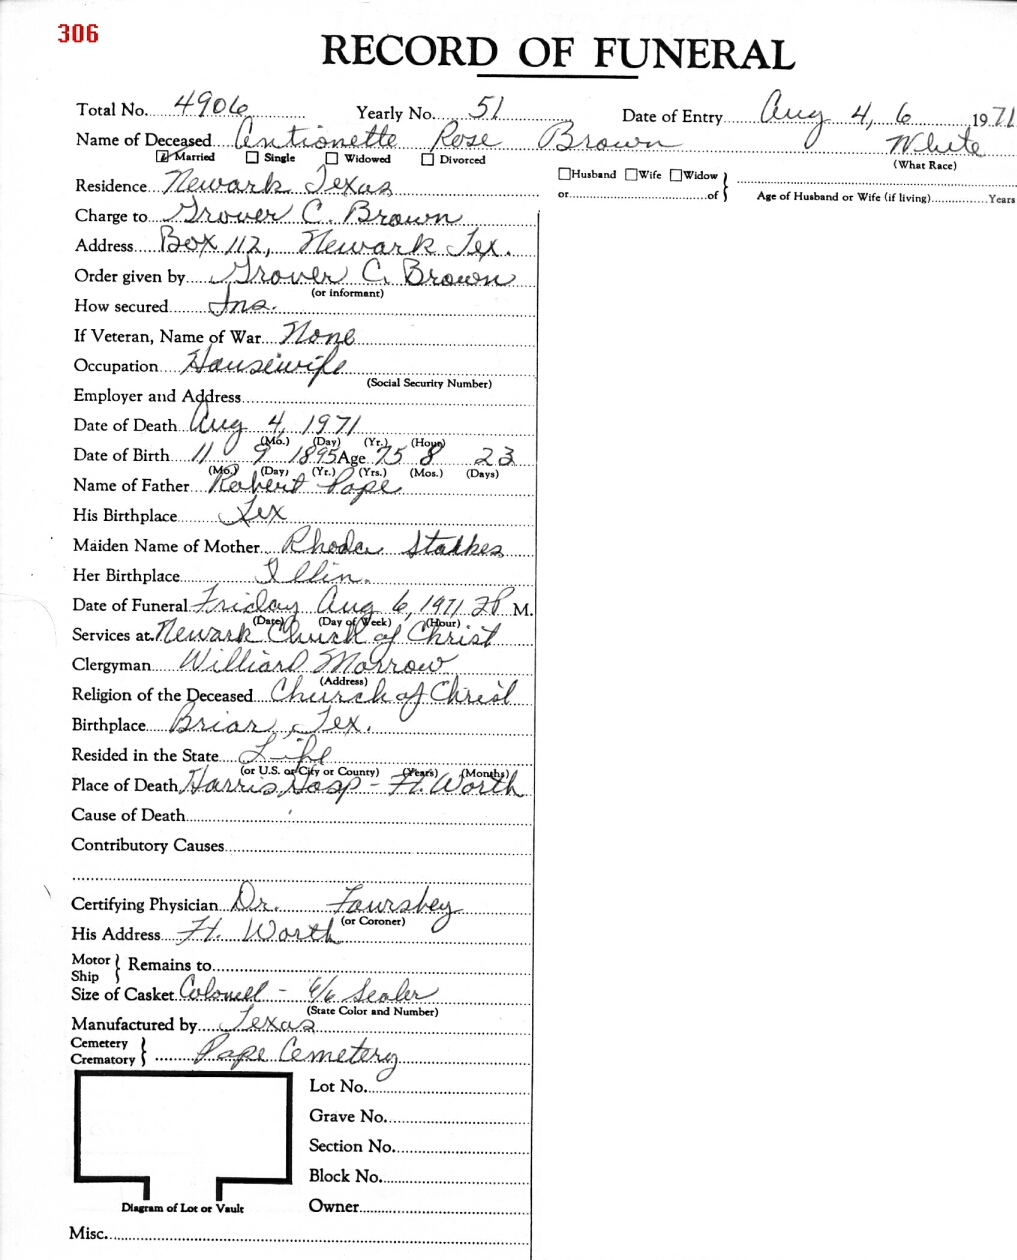 306
RECORD OF FUNERAL
Total No. 4906 Yearly No. 51 Date of Entry Aug 4, 6 1971
Name of Deceased Antionette Rose Brown White
Married Single Widowed Divorced (What Race)
Residence Newark Texas Husband Wife Widow
or of Age of Husband or Wife (if living) Years
Charge to Grover C. Brown
Address Box 112, Newark Tex.
Order given by Grover C. Brown
(or informant)
How secured Ins.
If Veteran, Name of War None
Occupation Housewife
(Social Security Number)
Employer and Address
Date of Death Aug 4, 1971
(Mo.) (Day) (Yr.) (Hour)
Date of Birth 11 9 1895 Age 75 8 23
(Mo.) (Day) (Yr.) (Yrs.) (Mos.) (Days)
Name of Father Robert Pape
His Birthplace Tex
Maiden Name of Mother Rhoda
Her Birthplace Illin.
Date of Funeral Friday Aug 6, 1971 2P M.
(Date) (Day of Week) (Hour)
Services at Newark Church of Christ
Clergyman Williard Morrow
(Address)
Religion of the Deceased Church of Christ
Birthplace Briar, Tex.
Resided in the State Life
(or U.S. or City or County) (Years) (Months)
Place of Death Harris Hosp - Ft. Worth
Cause of Death
Contributory Causes
Certifying Physician Dr.
(or Coroner)
His Address Ft. Worth
Motor
Ship } Remains to
Size of Casket - 6/6 Sealer
(State Color and Number)
Manufactured by Texas
Cemetery
Crematory } Pape Cemetery
Lot No.
Grave No.
Section No.
Block No.
Diagram of Lot or Vault
Owner
Misc.